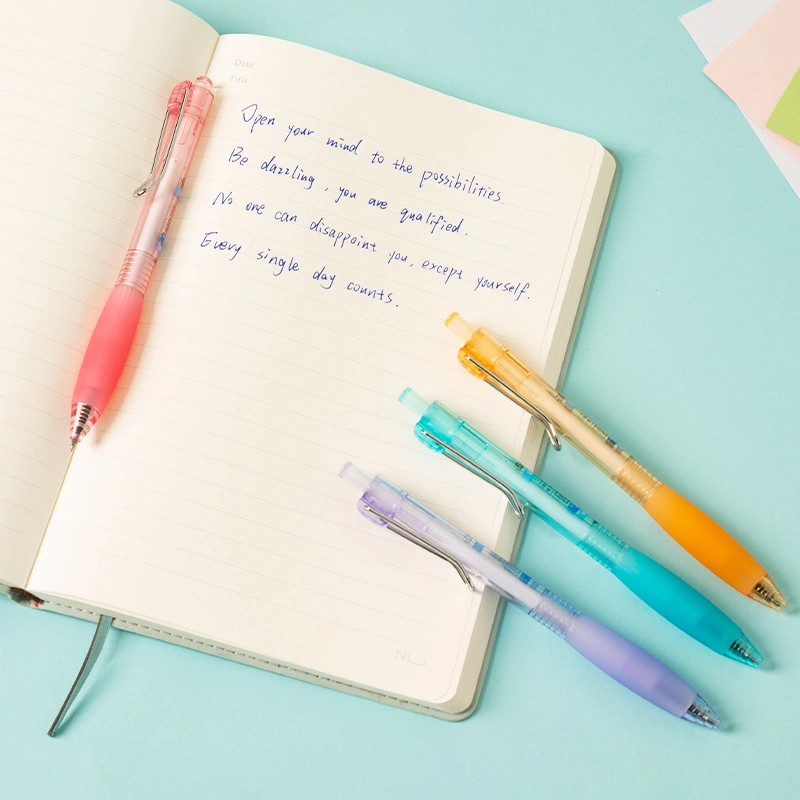 Date
Title
Open your mind to the possibilities.
Be dazzling, you are qualified.
No one can disappoint you, except yourself.
Every single day counts.